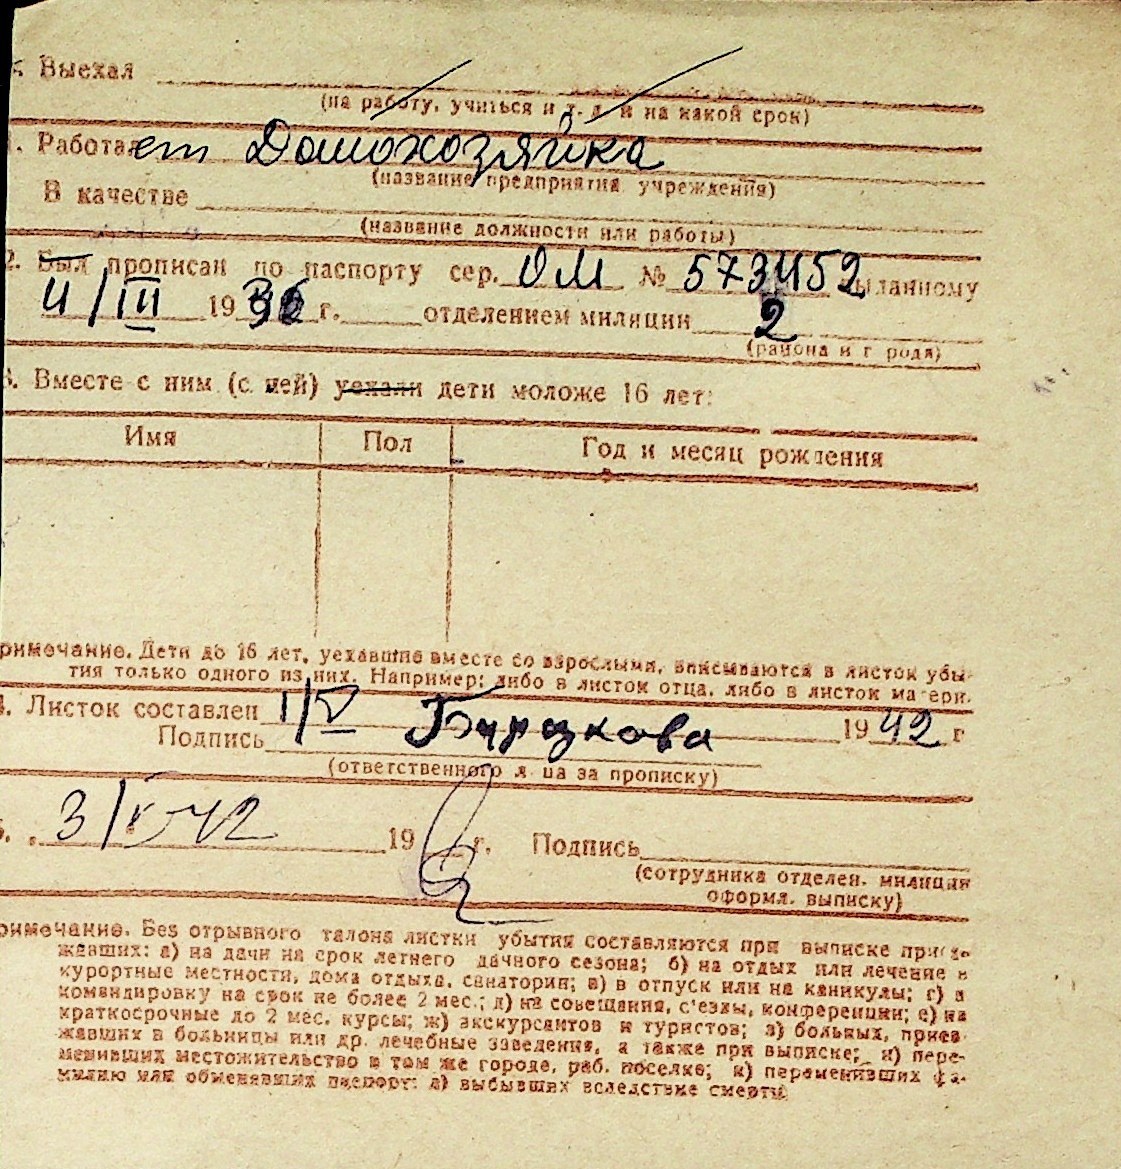 Выехал
(на работу, учиться и т. д. и на какой срок)
1. Работает Домохозяйка
(название предприятия учреждения)
В качестве
(название должности или работы)
2. Был прописан по паспорту сер. ОМ № 573452 выданному
4/III 19 г. отделением милиции 2
(района и г рода)
3. Вместе с ним (с ней) уехали дети моложе 16 лет:
Имя Пол Год и месяц рождения
римечание. Дети до 16 лет, уехавшие вместе со взрослыми, вписываются в листок убы-
тия только одного из них. Например: либо в листок отца, либо в листок матери.
4. Листок составлен 1/V 1942 г
Подпись
(ответственного лица за прописку)
3/V 42 19 г. Подпись
(сотрудника отделен. милиции
оформл. выписку)
римечание. Без отрывного талона листки убытия составляются при выписке приез-
жавших: а) на дачи на срок летнего дачного сезона; б) на отдых или лечение в
курортные местности, дома отдыха, санатория; в) в отпуск или на каникулы; г) в
командировку на срок не более 2 мес.; д) на совещания, с'езды, конференции; е) на
краткосрочные до 2 мес. курсы; ж) экскурсантов и туристов; з) больных, приез-
жавших в больницы или др. лечебные заведения, а также при выписке; и) пере-
менивших местожительство в том же городе, раб. поселке; к) переменивших фа-
милию или обменявших паспорт; л) выбывших вследствие смерти